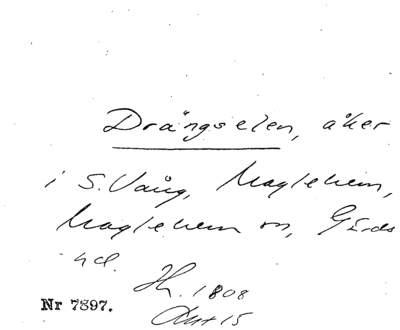 Drängselen, åker
i S. Vång, Maglehem,
Maglehem sn, Gärds
hd.
Hh. 1808
Akt 15
Nr 7897.